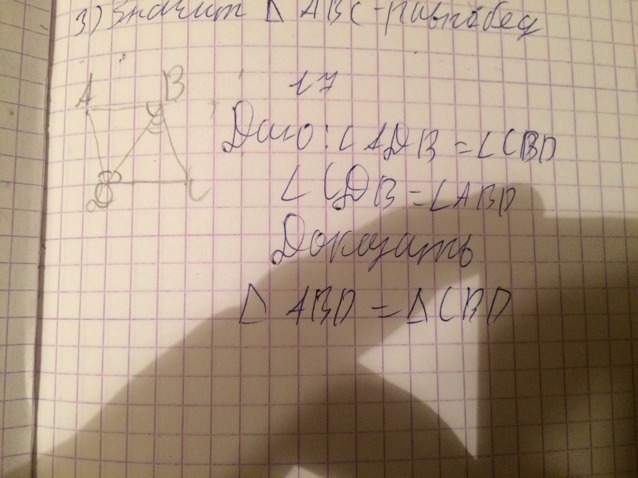 3) Значит Δ ABC - равнобед
A B
17
Дано: ∠ADB = ∠CBD
∠CDB = ∠ABD
Доказать
Δ ABD = Δ CBD
D C